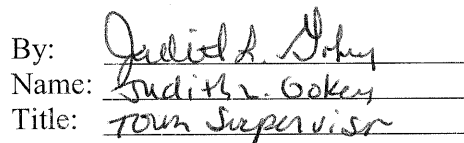 By: Judith L. Gokey
Name: Judith L. Gokey
Title: Town Supervisor